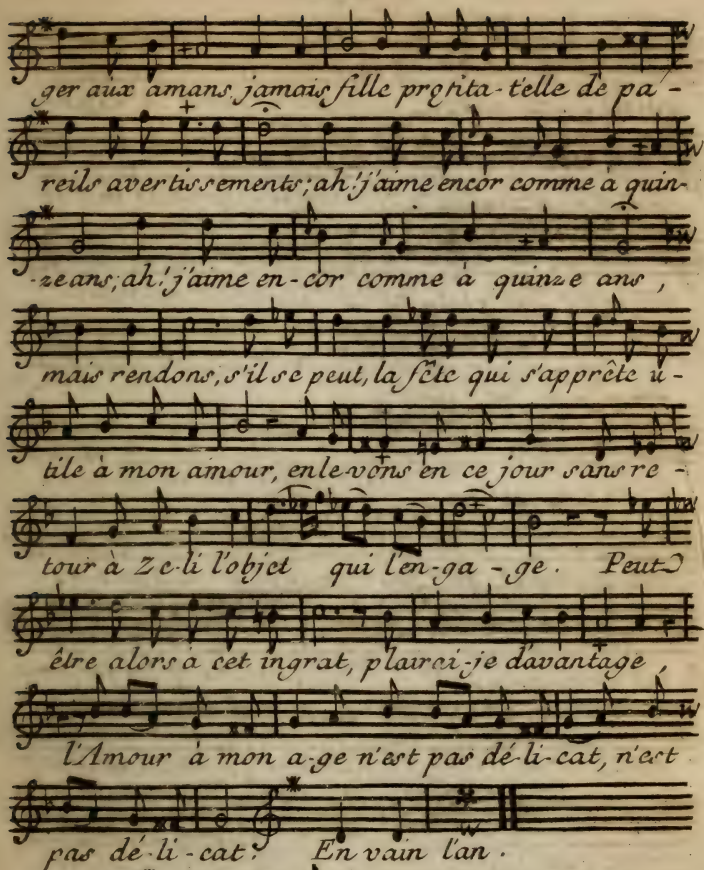 ger aux amans, jamais fille profita-t'elle de pa-
reils avertissements; ah! j'aime encor comme à quin-
-ze ans; ah! j'aime en-cor comme à quinze ans,
mais rendons, s'il se peut, la fête qui s'apprête u-
tile à mon amour, enlevons en ce jour sans re-
tour à Ze-li l'objet qui l'en-ga-ge. Peut
être alors à cet ingrat, plairai-je davantage,
l'Amour à mon a-ge n'est pas dé-li-cat, n'est
pas dé-li-cat. En vain l'an.